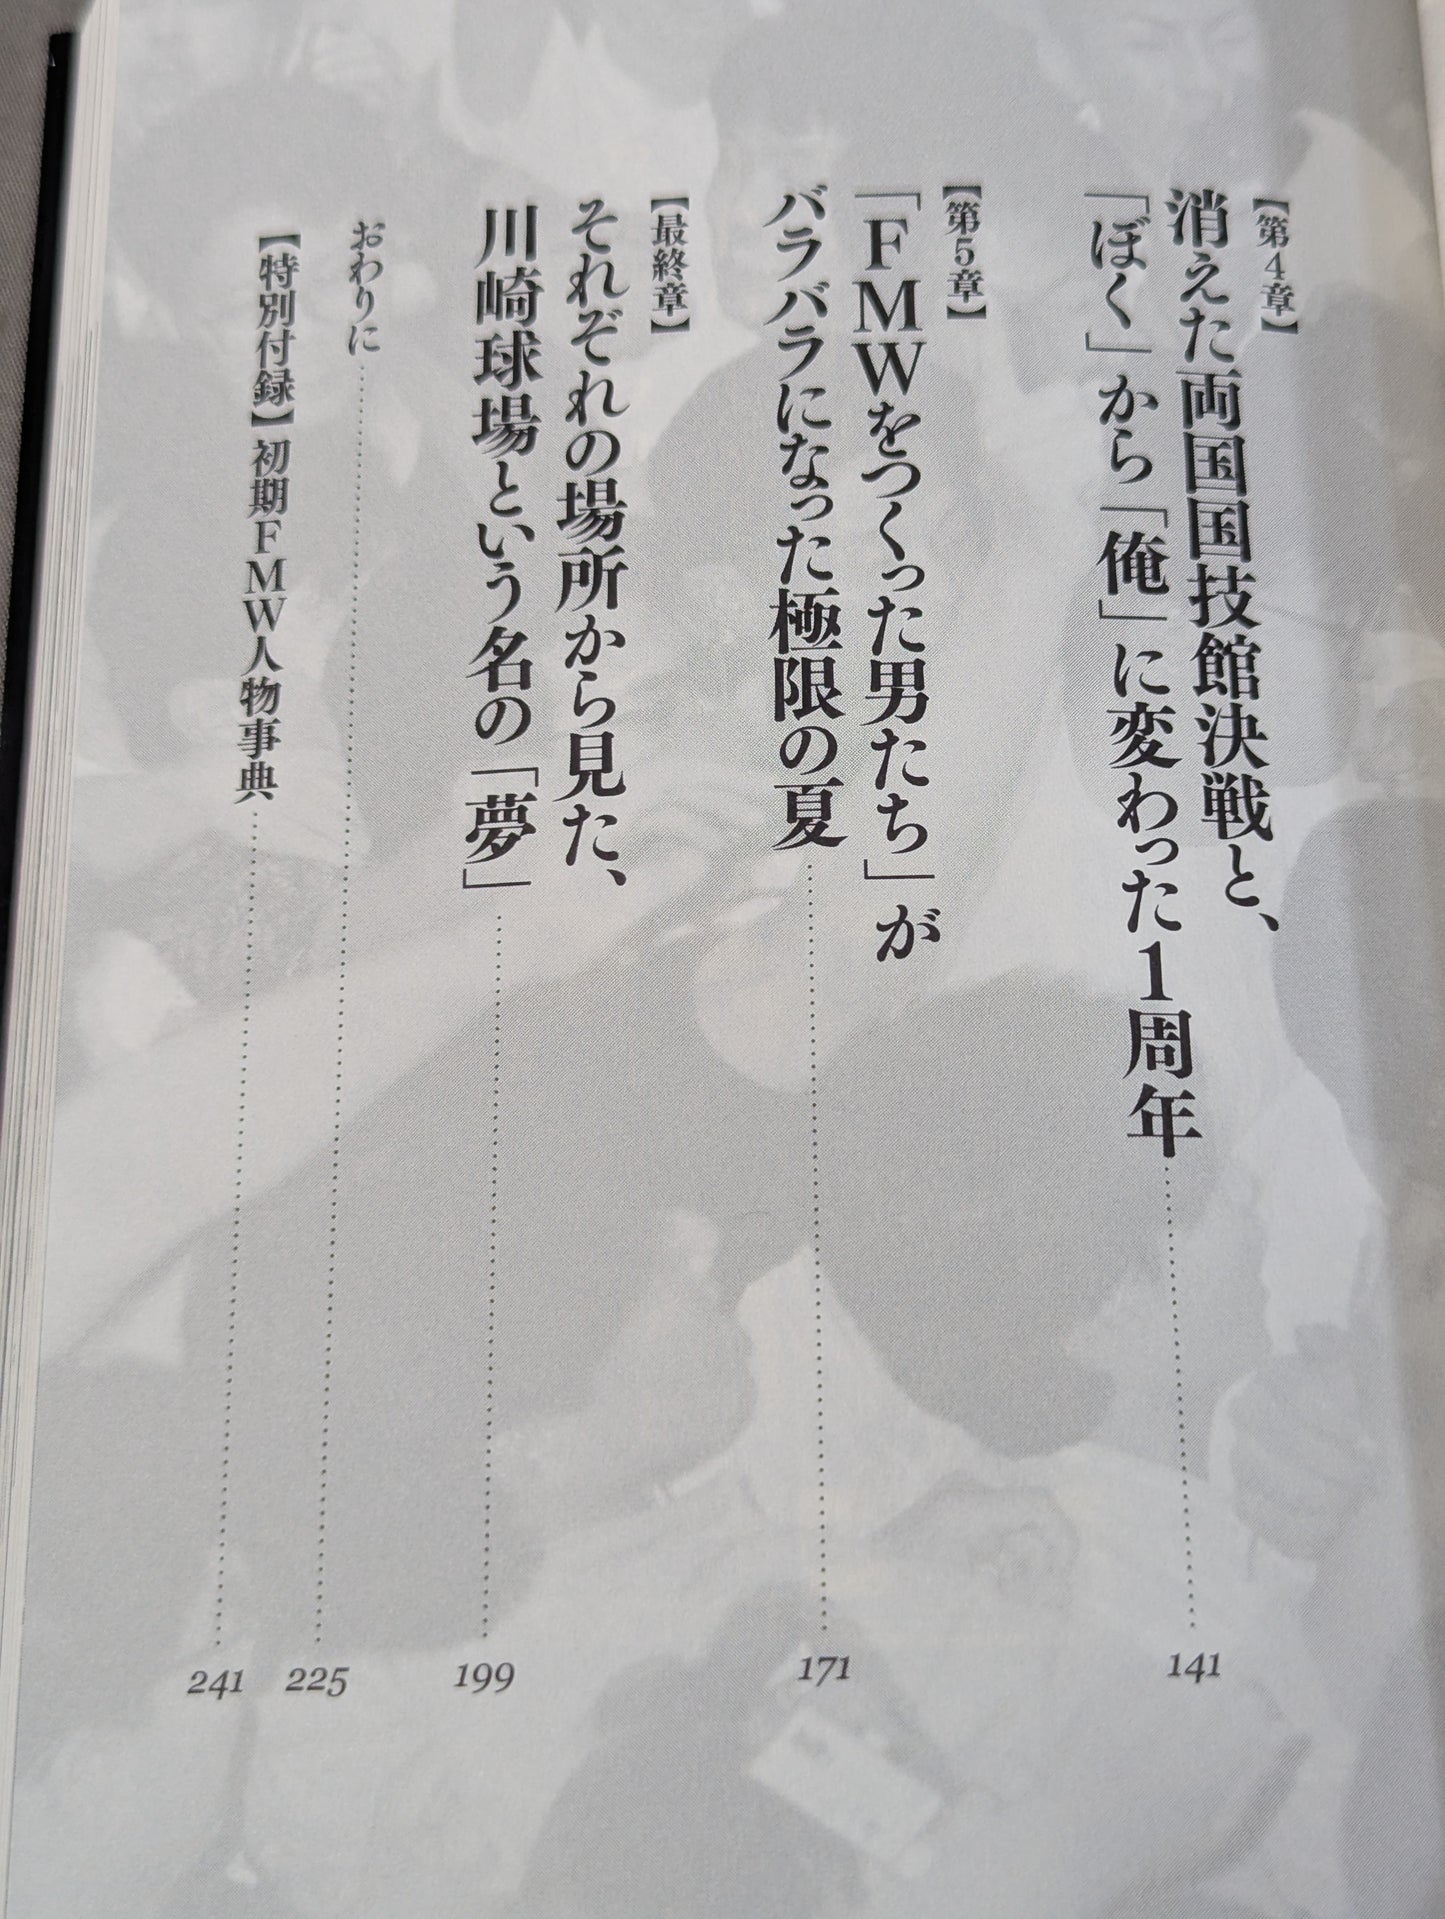 【第4章】
消えた両国国技館決戦と、
「ぼく」から「俺」に変わった1周年
141
【第5章】
「FMWをつくった男たち」が
バラバラになった極限の夏
171
【最終章】
それぞれの場所から見た、
川崎球場という名の「夢」
199
おわりに
225
【特別付録】初期FMW人物事典
241